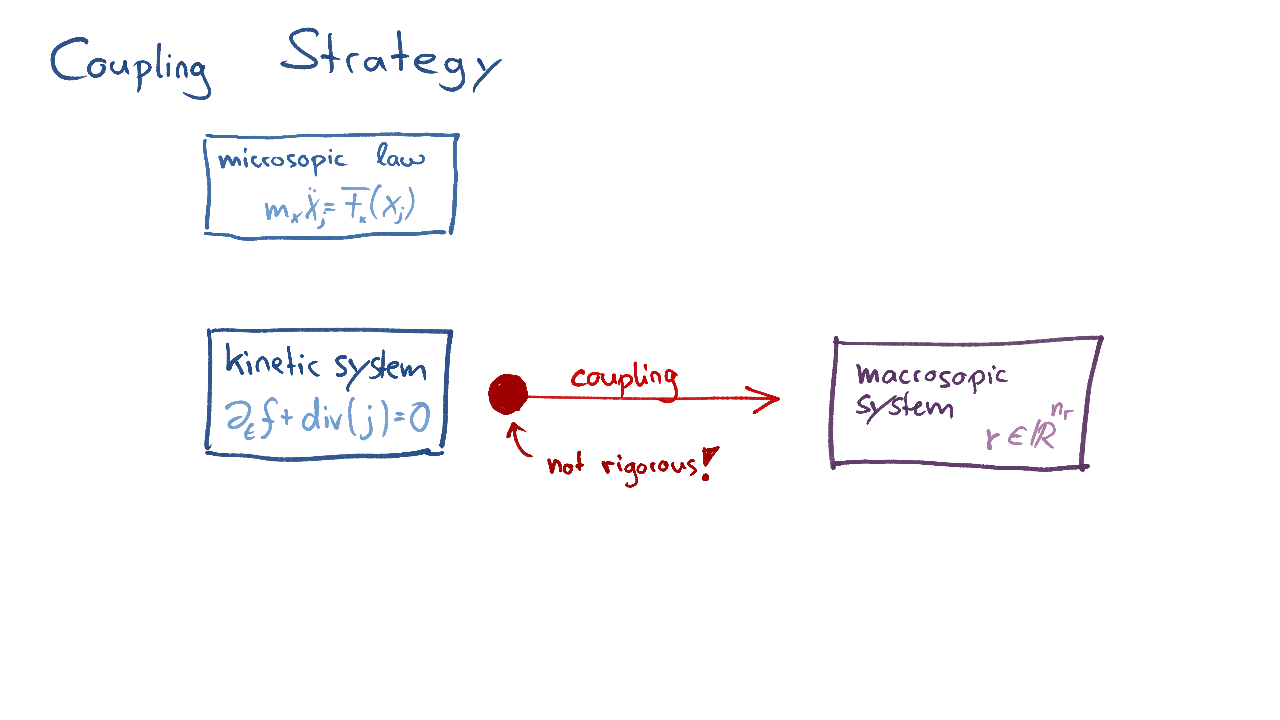 Coupling Strategy
microsopic law
mₓẍⱼ = Fₓ(xⱼ)
kinetic system
∂ₜf + div(j) = 0
coupling
not rigorous!
macrosopic
system
r ∈ ℝ^{n_r}